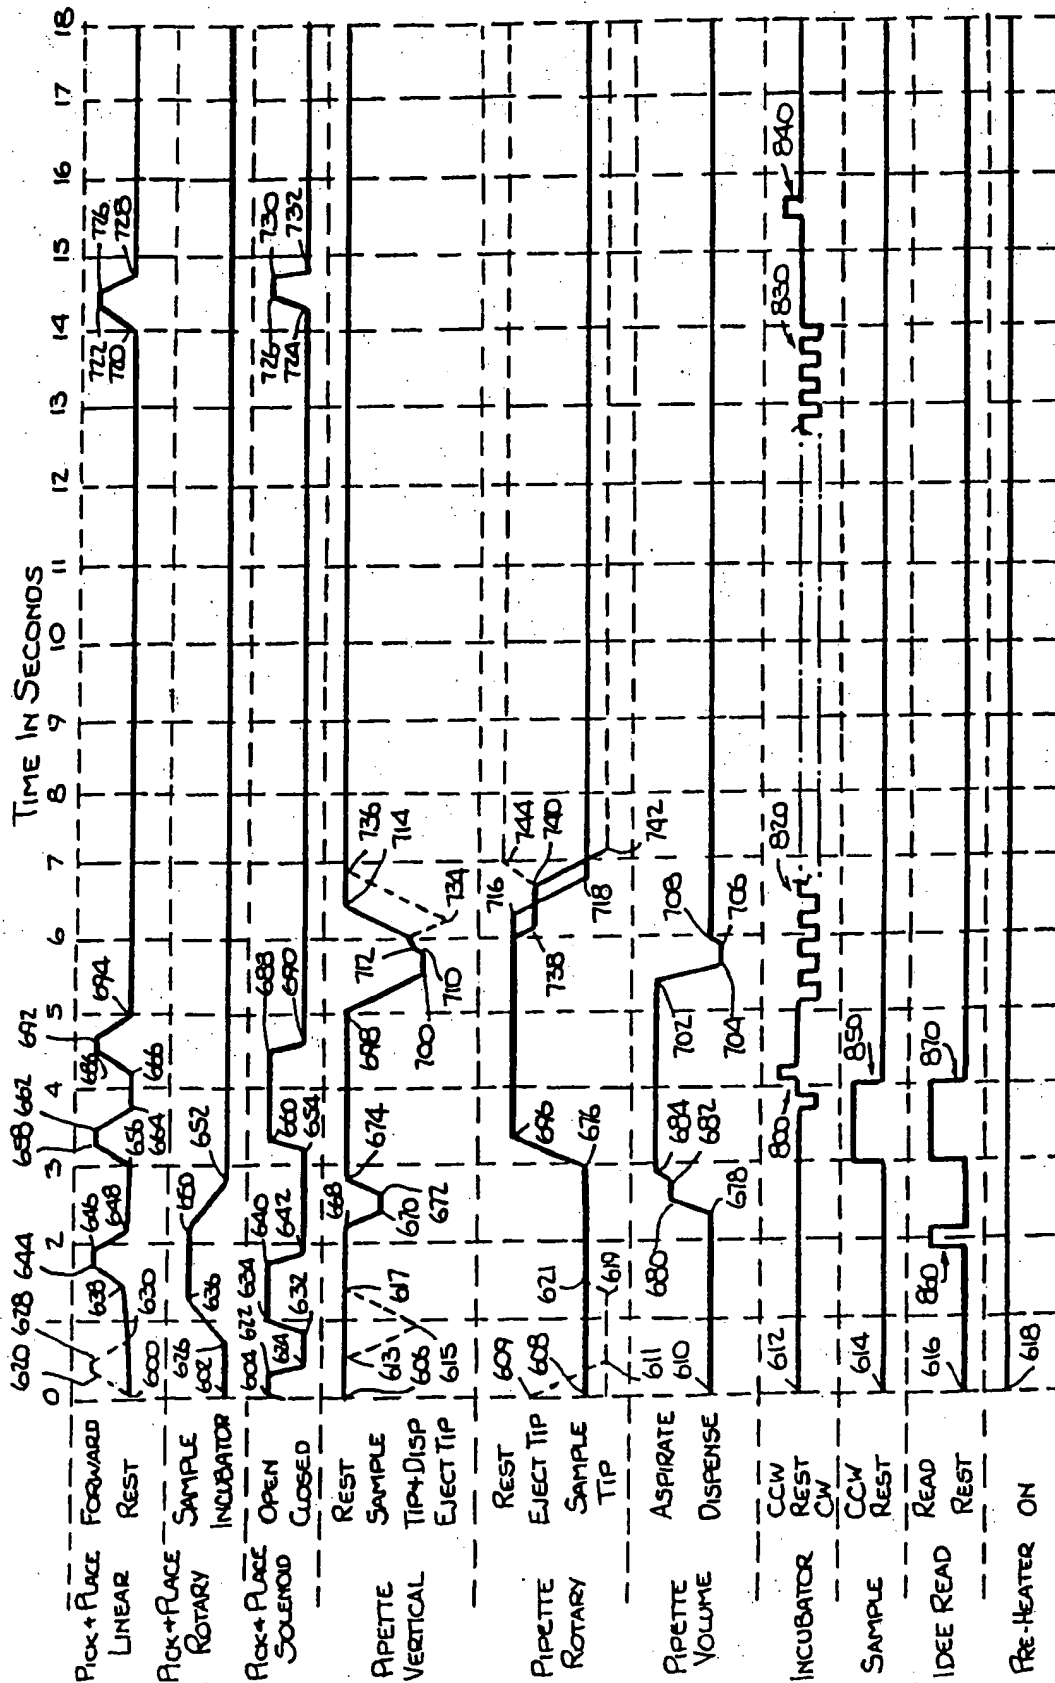 TIME IN SECONDS
0 1 2 3 4 5 6 7 8 9 10 11 12 13 14 15 16 17 18
PICK & PLACE LINEAR
FORWARD
REST
620 628 644 658 662 692
600 630 638 646 648 656 664 666 686 694
722 720 726 728
PICK & PLACE ROTARY
SAMPLE
INCUBATOR
626 602 636 650 652
PICK & PLACE SOLENOID
OPEN
CLOSED
604 624 622 634 632 640 642 660 654 688 690
726 724 730 732
PIPETTE VERTICAL
REST
SAMPLE
TIP & DISP
EJECT TIP
613 606 615 617 668 670 672 674 698 700 710 712 734 736 714
PIPETTE ROTARY
REST
EJECT TIP
SAMPLE
TIP
609 608 611 621 619 676 696 738 716 718 744 740 742
PIPETTE VOLUME
ASPIRATE
DISPENSE
610 680 678 684 682 702 704 708 706
INCUBATOR
CCW
REST
CW
612 800 820 830 840
SAMPLE
CCW
REST
614 850
IDEE READ
READ
REST
616 860 870
PRE-HEATER ON
618